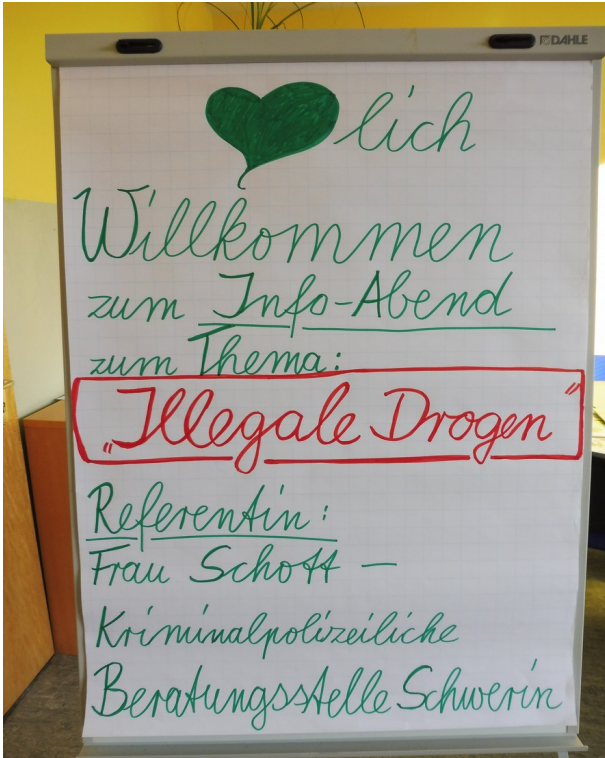 DAHLE
lich
Willkommen
zum Info-Abend
zum Thema:
„Illegale Drogen"
Referentin:
Frau Schott –
Kriminalpolizeiliche
Beratungsstelle Schwerin